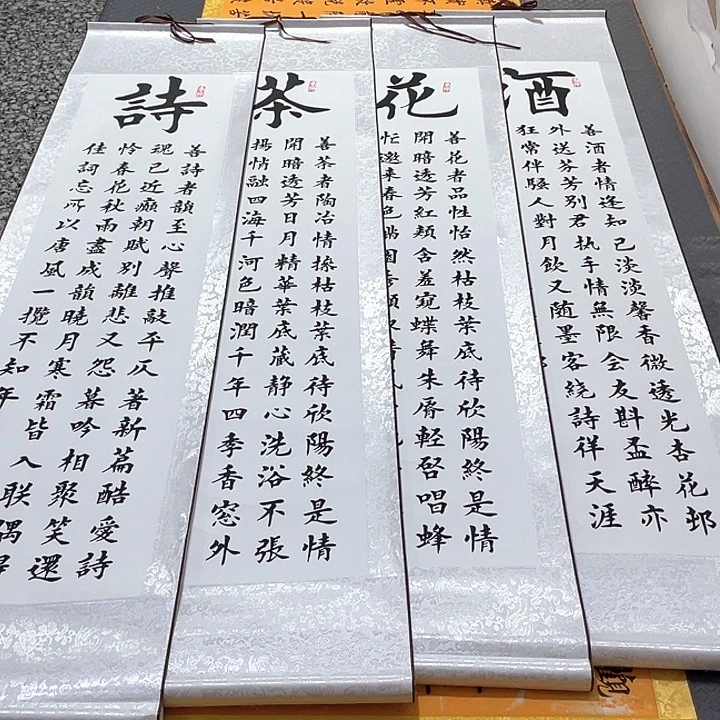 酒
善酒者情逢知己淡淡馨香微透光杏花邨
外送芬芳別君执手情無限会友斟盃醉亦
狂常伴騷人對月飲又随墨客繞詩祥天涯
花
善花者品性怡然枯枝葉底待欣陽終是情
開暗透芳紅頬含羞窺蝶舞朱唇輕啓唱蜂
忙邀来春色
茶
善茶者陶冶情操枯枝葉底待欣陽終是情
開暗透芳日月精華葉底蔵静心洗浴不張
揚情融四海千河色暗潤千年四季香窓外
詩
善詩者韻至心聲推敲平仄著新篇酷愛詩
魂已近癲朝賦別離悲又怨暮吟相聚笑還
怜春花秋雨盡成韻曉月寒霜皆入联偶
佳詞忘所以唐風一攬不知年